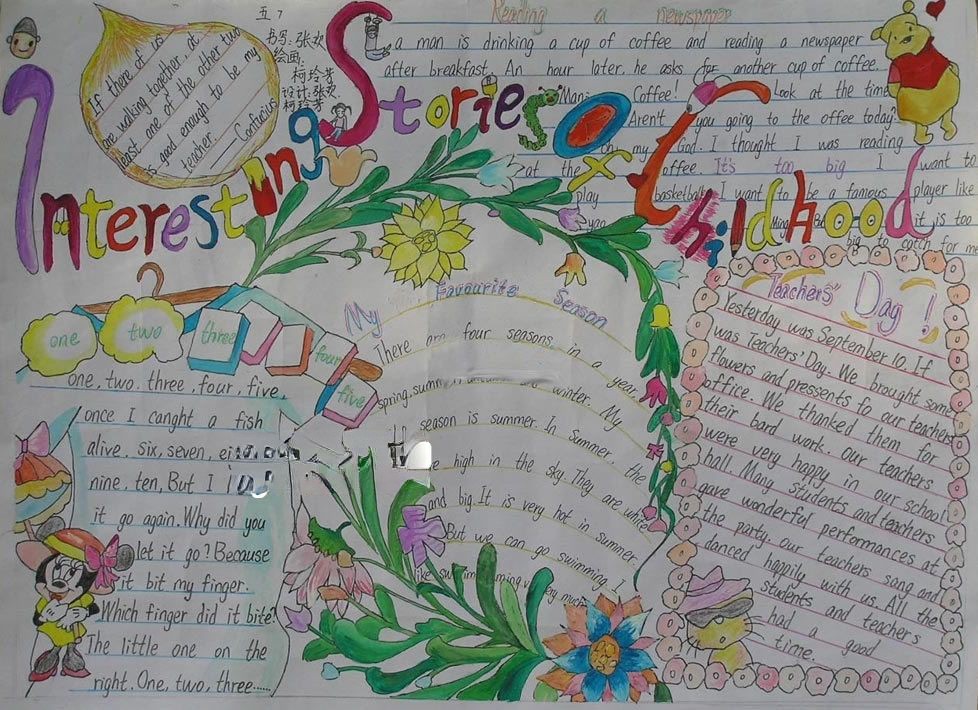 五 7
书写:张欢
绘画:
柯玲芳
设计:张欢
柯玲芳
Interesting Stories Of Childhood
If there of us
are walking together, at
least one of the other two
is good enough to be my
teacher.
——Confucius
Reading a newspaper
a man is drinking a cup of coffee and reading a newspaper
after breakfast. An hour later, he asks for another cup of coffee.
Coffee! Look at the time
Aren't you going to the offee today?
my God. I thought I was reading
at the coffee. It's too big I want to
play basketball. I want to be a famous player like
Yao Ming. But it is too
big to catch for me
one
two
three
four
five
one, two, three, four, five,
once I caught a fish
alive. six, seven,
nine, ten, But I
it go again. Why did you
let it go? Because
it bit my finger.
Which finger did it bite?
The little one on the
right. One, two, three......
My Favourite Season
There are four seasons in a year.
spring, winter. My
season is summer. In Summer the
high in the sky. They are white
and big. It is very hot in summer.
But we can go swimming. I
like very much
Teachers' Day!
Yesterday was September 10. If
was Teachers' Day. We brought some
flowers and pressents fo our teachers
office. We thanked them for
their bard work. our teachers
were very happy in our school
hall. Mang students and teachers
gave wonderful performances at
the party. our teachers sang and
danced happily with us. All the
students and teachers
had a good
time.